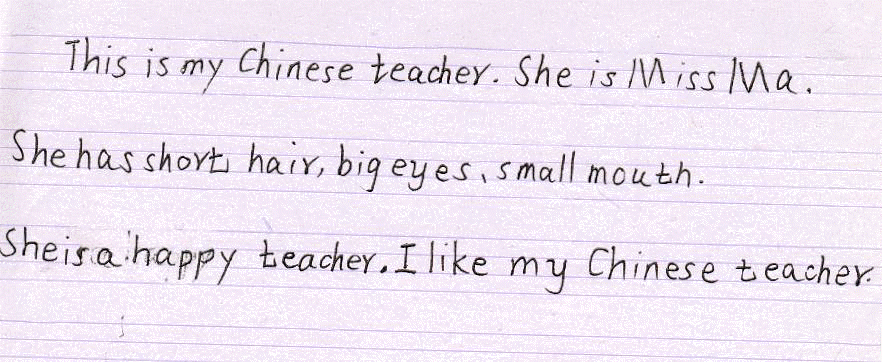 This is my Chinese teacher. She is Miss Ma.
She has short hair, big eyes, small mouth.
She is a happy teacher. I like my Chinese teacher.